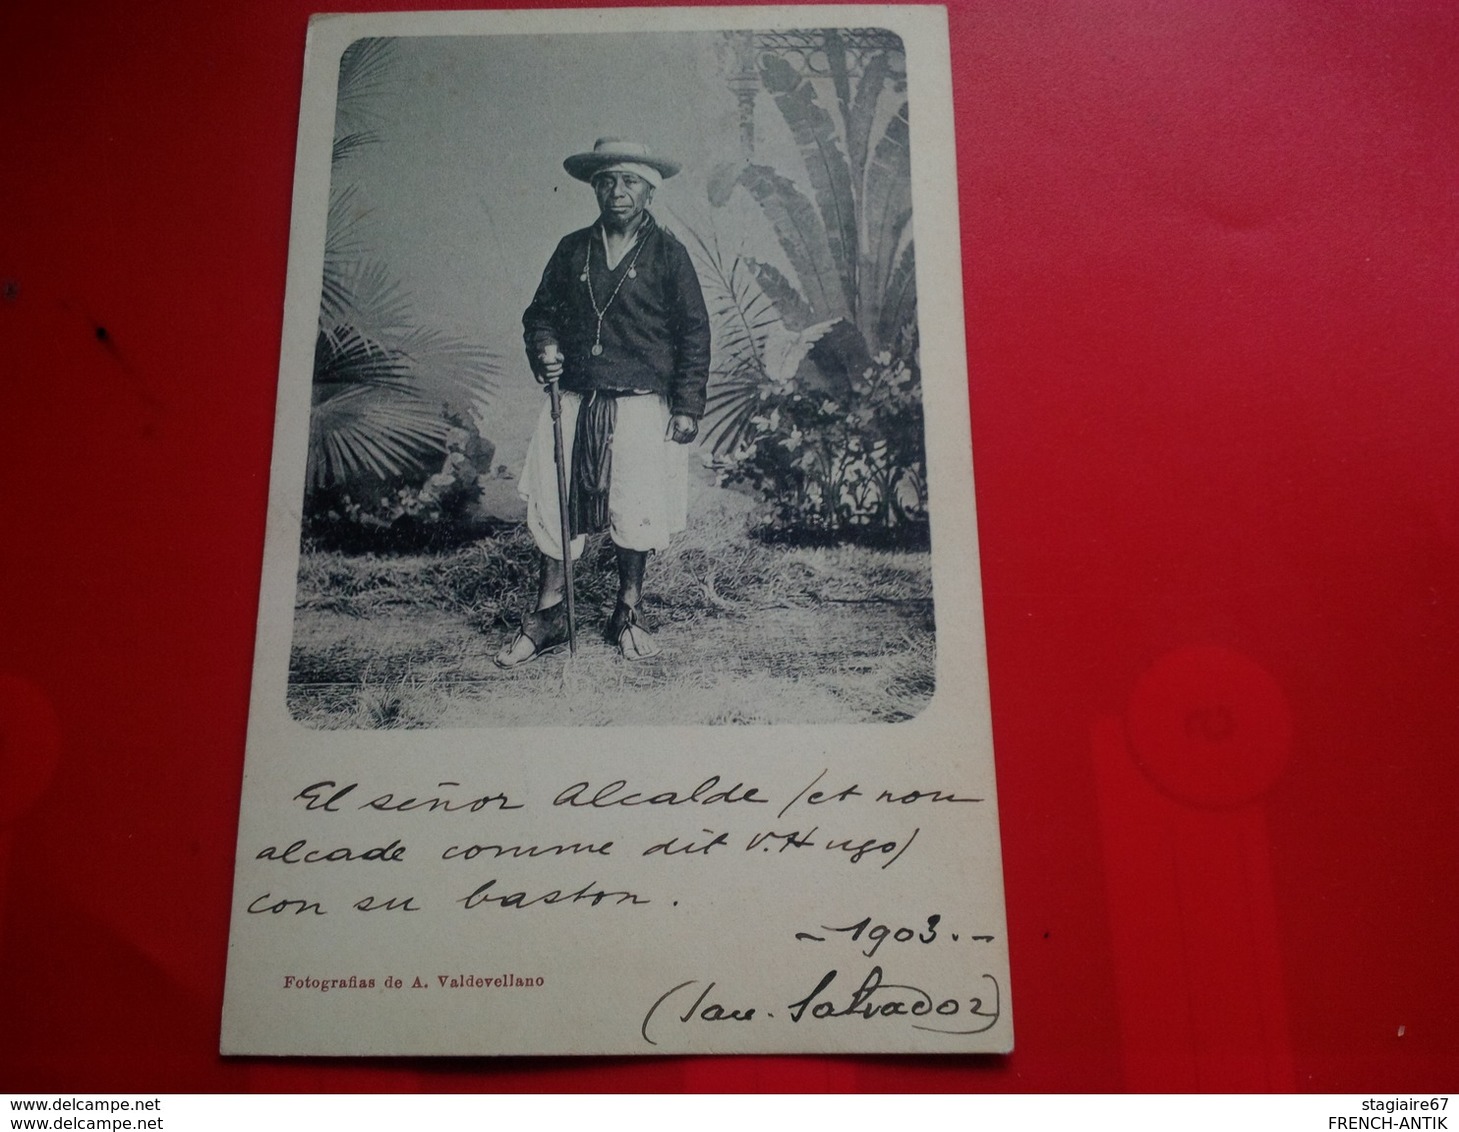 El señor Alcalde (et non
alcade comme dit V. Hugo)
con su baston.
- 1903. -
Fotografias de A. Valdevellano
(San. Salvador)
www.delcampe.net
www.delcampe.net
stagiaire67
FRENCH-ANTIK